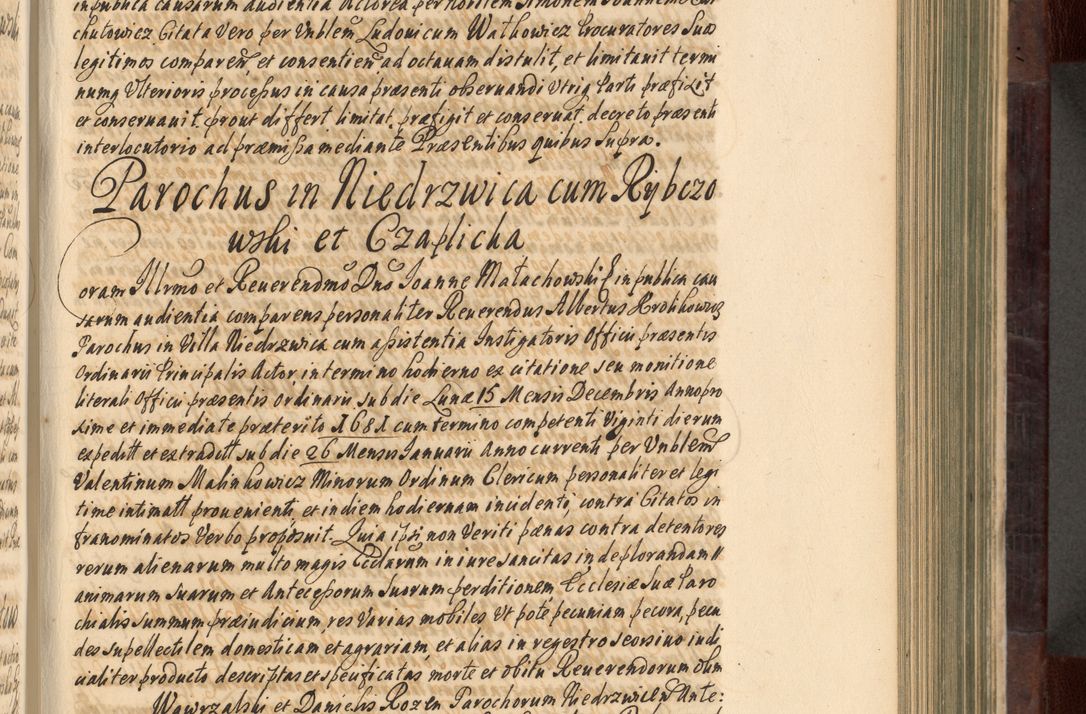 inpublica causarum audientia Actorea per Nobilem Simonem Joannem Car
chutowicz Citata Vero per Vnblem Ludovicum Walkowicz Procuratores Suos
legitimos comparen, et consentien, ad octavam distulit, et limitavit termi
numq Vlterioris processus in causa præsenti observandi Vtriq Parti præfixit
et conservavit. prout differt limitat, præfigit et conservat. decreto præsenti
interlocutorio ad præmissa mediante Præsentibus quibus Supra.
Parochus in Niedrzwica cum Rybczo
wski et Czaplicka
Coram Illrmo et Reverendmo Dno Joanne Małachowski & in publica cau
sarum audientia comparens personaliter Reverendus Albertus Krolikowicz
Parochus in Villa Niedrzwica cum assistentia Instigatoris Officii præsentis
Ordinarii Principalis Actor, in termino hodierno ex citatione seu monitione
literali Officii præsentis Ordinarii sub die Lunæ 15 Mensis Decembris Anno pro
xime et immediate præterito 1681 cum termino competenti Viginti dierum
expeditt et extraditt sub die 26 Mensis Januarii Anno currenti per Vnblem
Valentinum Malinkowicz Minorum Ordinum Clericum personaliter et legi
time intimatt provenienti, et in diem hodiernam incidenti, contra Citatos in
franominatos Verbo proposuit. Quia ipsi non Veriti pænas contra detentores
rerum alienarum multo magis Ecclarum in iure sancitas in deplorandam
animarum Suarum et Antecessorum Suorum perditionem, Ecclesiæ Suæ Paro
chialis summum præiudicium, res Varias mobiles Vt pote pecuniam pecora, pecu
des supellectilem domesticam et agrariam, et alias in regestro seorsivo iudi
cialiter producto descriptas et specificatas morte et obitu Reverendorum olim
Wawrzalski et Danielis Rozen Parochorum Niedrzwicen Ante: